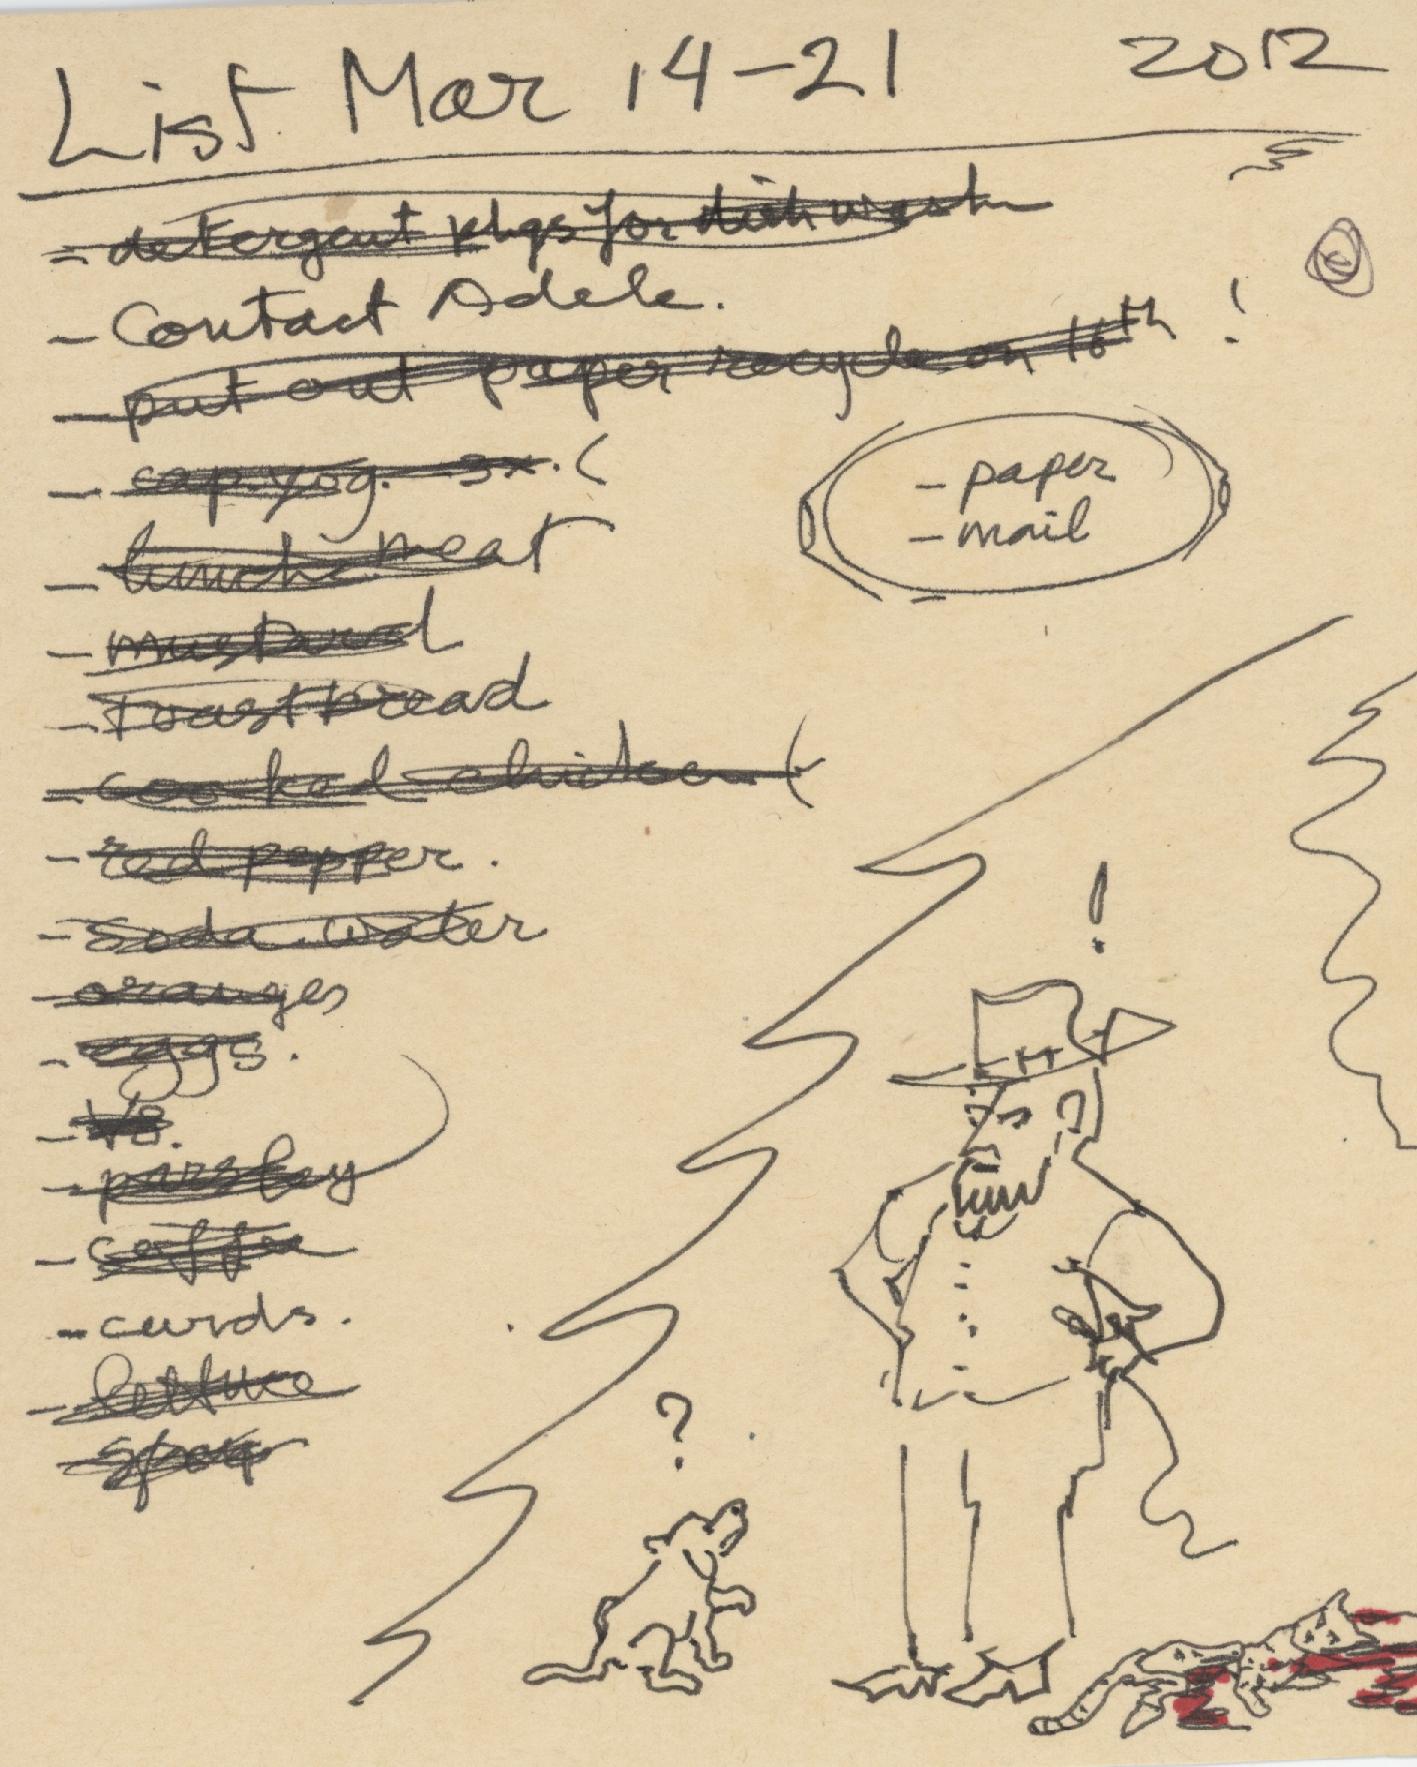 List Mar 14-21 2012
- detergent pkgs for dishwash
- Contact Adele.
- put out paper recycle on 16th !
- cap. yog. 3x. (
- paper
- mail
- lunch meat
- mustard
- Toast bread
- cooked chicken (
- red pepper.
- soda water
- oranges
- eggs.
- V8.
- parsley
- coffee
- curds.
- lettuce
!
?